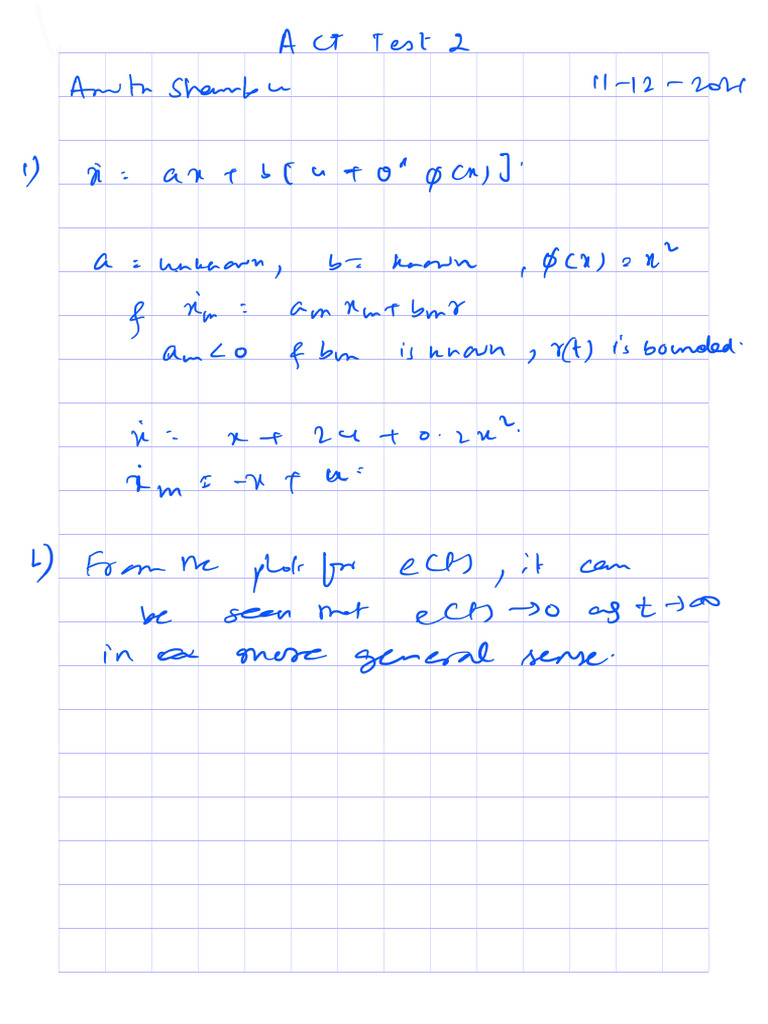 ACT Test 2
Shambu 11-12-2021
1) ẋ = ax + b[u + θ* φ(x)].
a = unknown, b = known, φ(x) = x²
& ẋm = am xm + bm r
am < 0 & bm is known, r(t) is bounded.
ẋ = x + 2u + 0.2x².
ẋm = -x + u =
2) From the plots for e(t), it can
be seen that e(t) → 0 as t → ∞
in a more general sense.